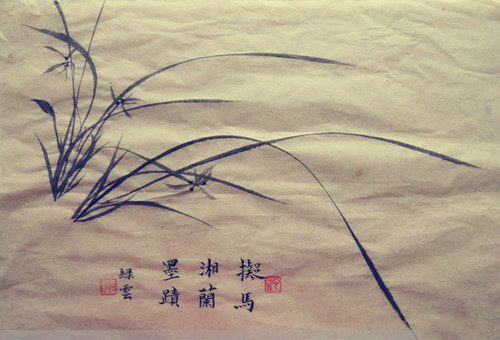 擬馬
湘蘭
墨蹟
綠雲